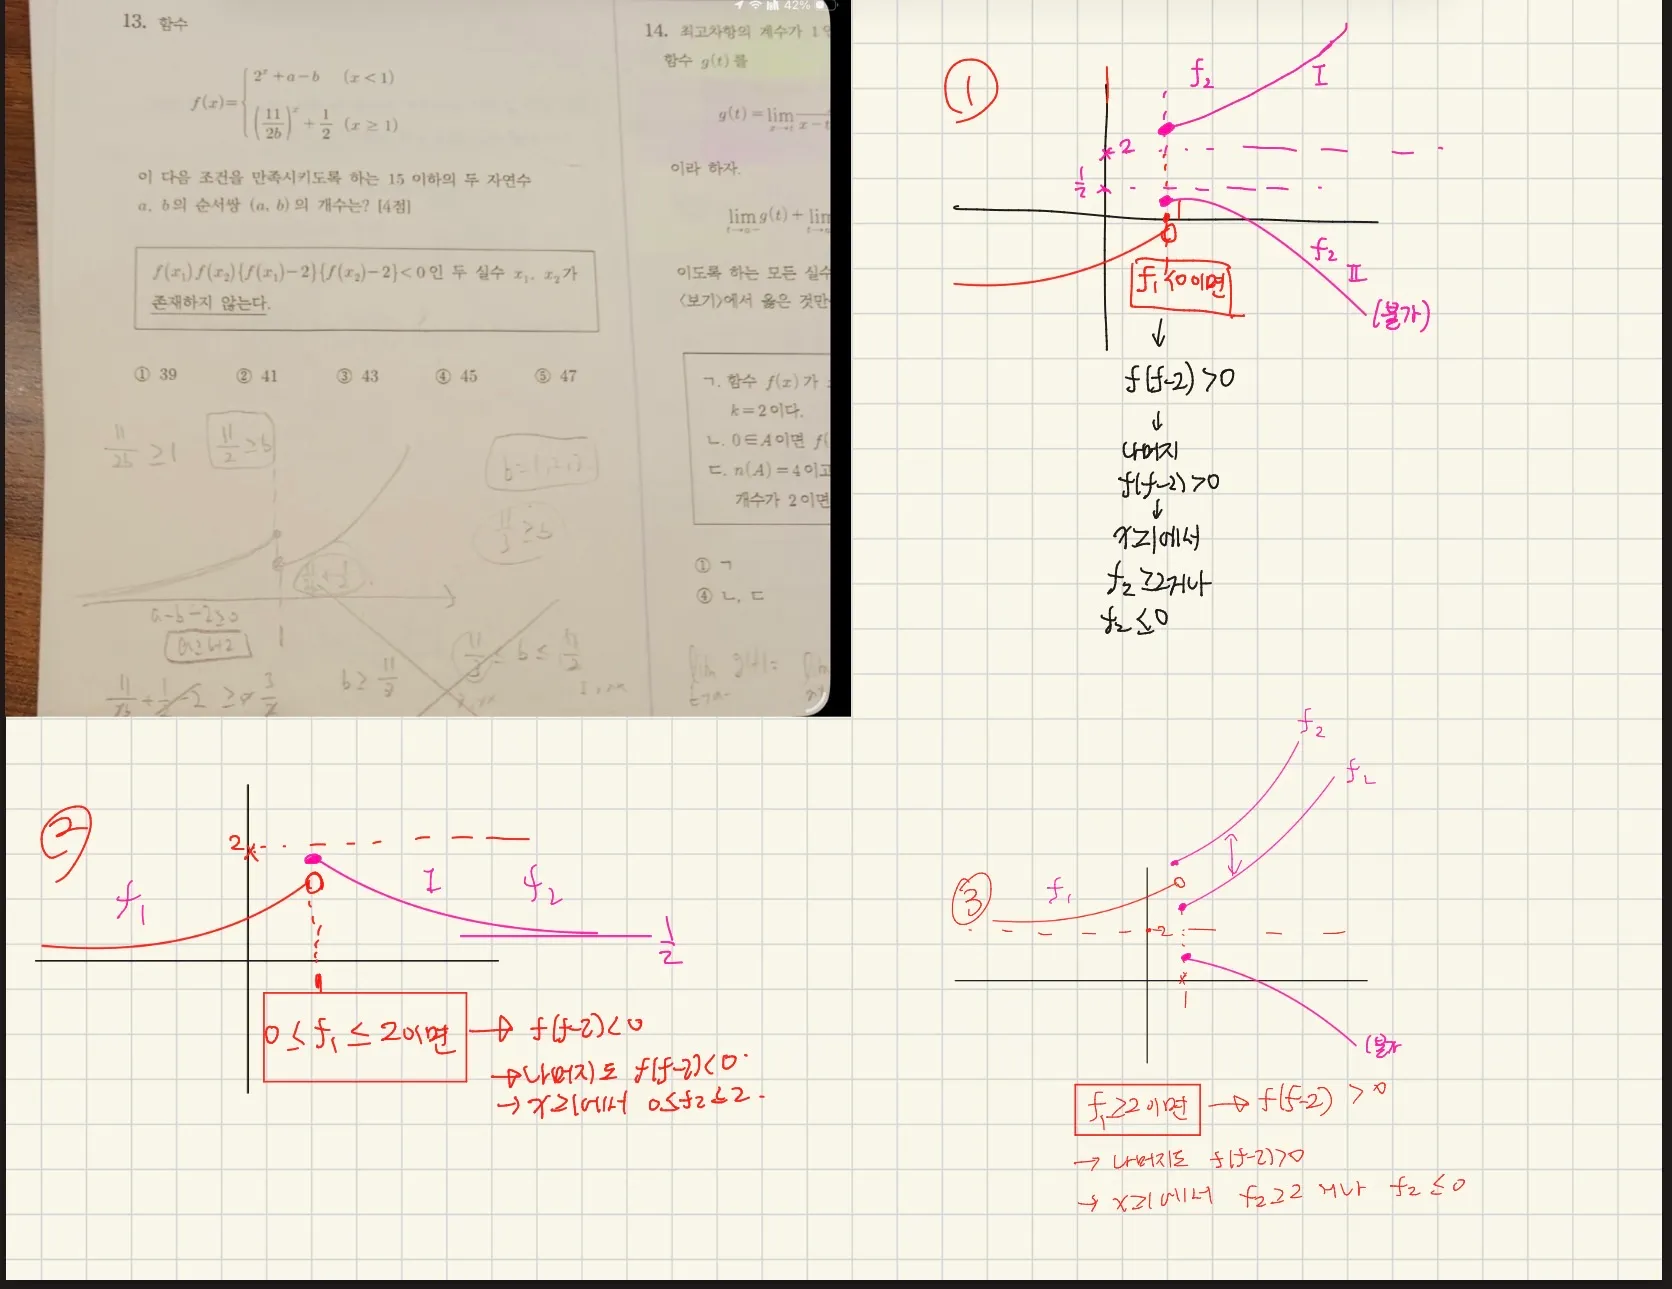 42%
13. 함수
f(x)= { 2^x + a - b (x < 1)
(11/2b)^x + 1/2 (x ≥ 1)
이 다음 조건을 만족시키도록 하는 15 이하의 두 자연수
a, b의 순서쌍 (a, b)의 개수는? [4점]
f(x₁)f(x₂){f(x₁)-2}{f(x₂)-2}<0인 두 실수 x₁, x₂가
존재하지 않는다.
① 39 ② 41 ③ 43 ④ 45 ⑤ 47
11/2b ≥ 1
11/2 ≥ b
b=1,2,3
11/3 ≥ b
a-b-2≥0
a≥b+2
1
b ≥ 11/3
11/3 ≤ b ≤ 11/2
14. 최고차항의 계수가 1
함수 g(t)를
g(t)=lim
x→t x-t
이라 하자.
lim g(t)+lim
t→a-
이도록 하는 모든 실수
<보기>에서 옳은 것만
ㄱ. 함수 f(x)가
k=2이다.
ㄴ. 0∈A이면 f(
ㄷ. n(A)=4이고
개수가 2이면
① ㄱ
④ ㄴ, ㄷ
lim g(t)= lim
t→a-
①
f₂ I
2
1/2
1
f₂
II
(불가)
f₁≤0이면
↓
f(f-2)>0
↓
나머지
f(f-2)>0
↓
x≥1에서
f₂≥2거나
f₂≤0
②
2
f₁
I
f₂
1/2
1
0≤f₁≤2이면 → f(f-2)<0
→ 나머지도 f(f-2)<0.
→ x≥1에서 0≤f₂≤2.
③
f₂
f₂
f₁
2
1
(불가
f₁≥2이면 → f(f-2)>0
→ 나머지도 f(f-2)>0
→ x≥1에서 f₂≥2 거나 f₂≤0